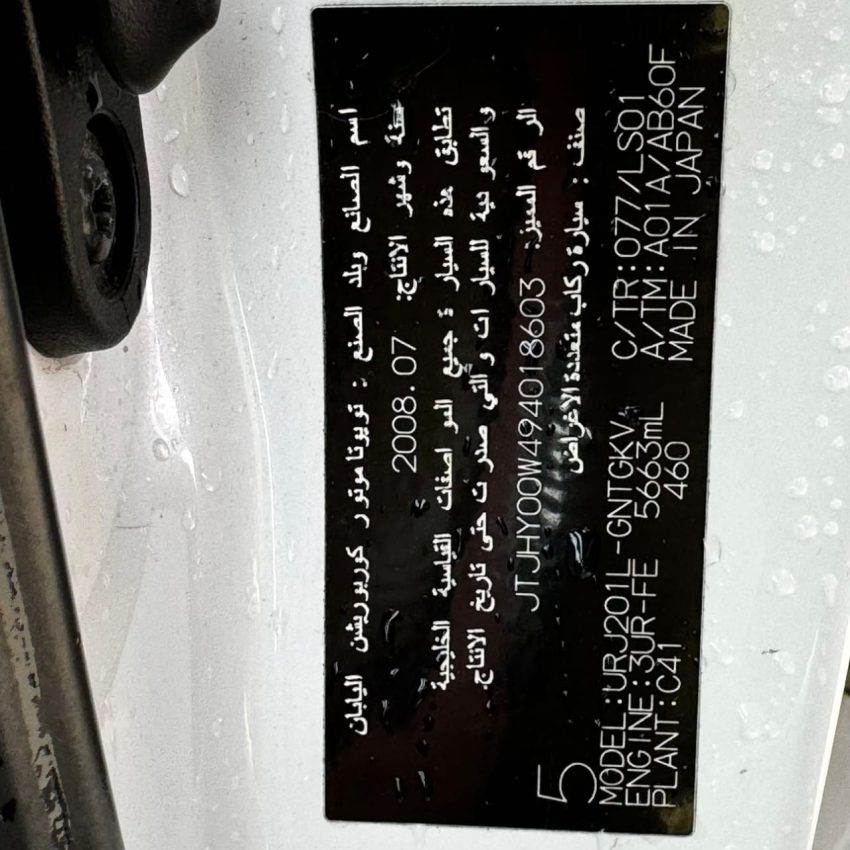 اسم الصانع وبلد الصنع : تويوتا موتور كوربوريشن اليابان
سنة وشهر الانتاج: 2008.07
تطابق هذه السيارة جميع المواصفات القياسية الخليجية
والسعودية للسيارات والتي صدرت حتى تاريخ الانتاج.
الرقم المميز: JTJHY00W494018603
صنف : سيارة ركاب متعددة الاغراض
5
MODEL:URJ201L-GNTGKV C/TR:077/LS01
ENGINE:3UR-FE 5663mL A/TM:A01A/AB60F
PLANT:C41 460 MADE IN JAPAN